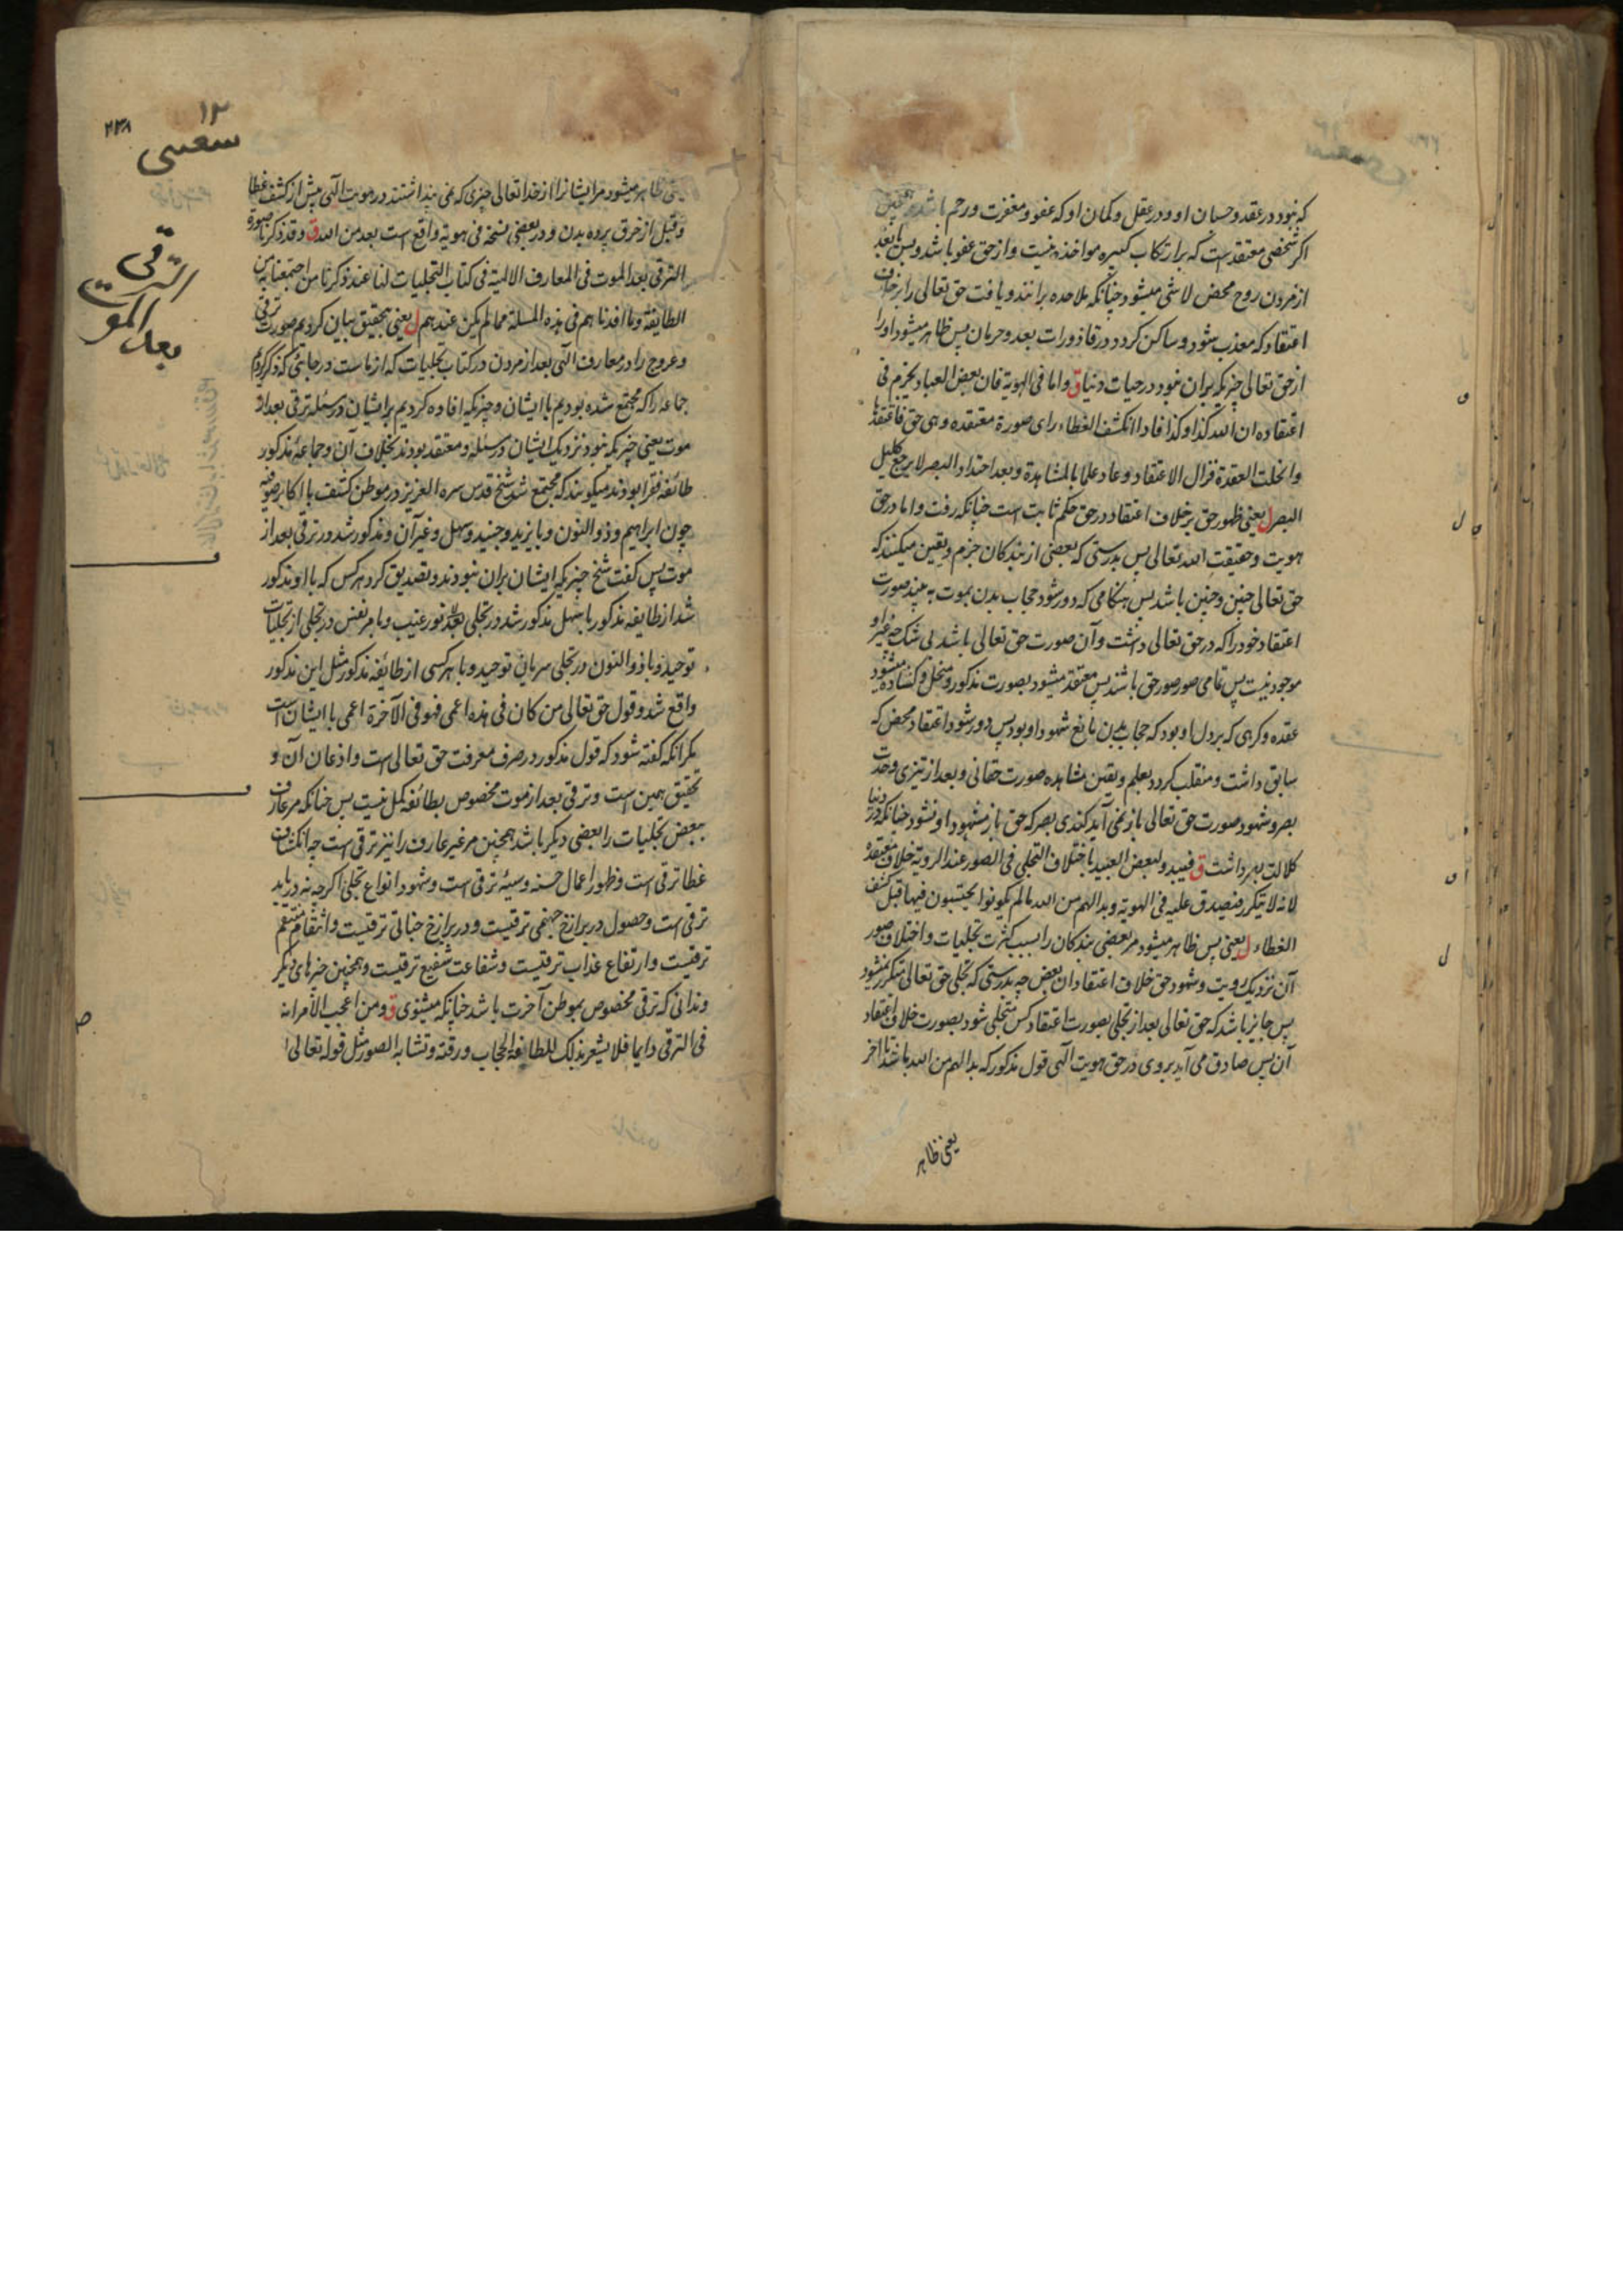 که نبود در عقد و حسبان او و در عقل و گمان او که عفو و مغفرت و رحم باشد
اگر شخصی معتقد است که بر ارتکاب کبیره مواخذه نیست و از حق عفو باشد و بس یا بعد
از مردن روح محض لاشی میشود چنانکه ملاحده برانند و یافت حق تعالی را بر خلاف
اعتقاد که معذب شود و ساکن کردد در قاذورات بعد و حرمان پس ظاهر میشود او را
از حق تعالی چیزیکه بران نبود در حیات دنیا ق و اما فی الهویة فان بعض العباد یجزم فی
اعتقاده ان الله کذا و کذا فاذا انکشف الغطاء رای صورة معتقده و هی حق فاعتقدها
و انحلت العقدة فزال الاعتقاد و عاد علما بالمشاهدة و بعد احتداد البصر لا یرجع کلیل
البصر ل یعنی ظهور حق بر خلاف اعتقاد در حق حکم ثابت است چنانکه رفت و اما در حق
هویت و حقیقت الله تعالی پس بدرستی که بعضی از بندکان جزم و یقین میکنند که
حق تعالی چنین و چنین باشد پس هنکامی که دور شود حجاب بدن بموت به بیند صورت
اعتقاد خود را که در حق تعالی داشت و آن صورت حق تعالی باشد بی شک چه غیر او
موجود نیست پس تمامی صور صور حق باشند پس معتقد میشود بصورت مذکور و منحل و کشاده میشود
عقده و کرهی که بر دل او بود که حجاب بدن مانع شهود او بود پس دور شود اعتقاد محض که
سابق داشت و منقلب کردد بعلم و یقین مشاهده صورت حقانی و بعد از تیزی وحدت
بصر و شهود صورت حق تعالی باز نمی آید کندی بصر که حق باز مشهود او نشود چنانکه در دنیا
کلالت بصر داشت ق فیبدو لبعض العبید باختلاف التجلی فی الصور عند الرویة خلاف معتقده
لانه لا یتکرر فیصدق علیه فی الهویة و بدا لهم من الله ما لم یکونوا یحتسبون فیها قبل کشف
الغطاء ل یعنی پس ظاهر میشود مر بعضی بندکان را بسبب کثرت تجلیات و اختلاف صور
آن نزدیک رویت و شهود حق خلاف اعتقاد ان بعض چه بدرستی که تجلی حق تعالی متکرر نمیشود
پس جایز باشد که حق تعالی بعد از تجلی بصورت اعتقاد کس متجلی شود بصورت خلاف اعتقاد
آن پس صادق می آید بر وی در حق هویت الهی قول مذکور که بدا لهم من الله باشد تا آخر
یعنی ظاهر
۱۲
۲۳۸
شعیبی
یعنی ظاهر میشود مر ایشانرا از خدا تعالی چیزی که نمی پنداشتند در هویت الهی پیش از کشف غطا
و قبل از خرق پرده بدن و در بعضی نسخه فی هویته واقع است بعد من الله ق و قد ذکرنا صورة
الترقی بعد الموت فی المعارف الالهیة فی کتاب التجلیات لنا عند ذکرنا من اجتمعنا به من
الطایفة و ما افدناهم فی هذه المسئلة مما لم یکن عندهم ل یعنی بتحقیق بیان کردیم صورت ترقی
و عروج را در معارف الهی بعد از مردن در کتاب تجلیات که از ماست در جائی که ذکر کردیم
جماعه را که مجتمع شده بودیم با ایشان و چیزیکه افاده کردیم بر ایشان در مسئله ترقی بعد از
موت یعنی چیزیکه نبود نزدیک ایشان در مسئله و معتقد بودند بخلاف آن و جماعه مذکور
طائفه فقرا بودند میکویند که مجتمع شد شیخ قدس سره العزیز در موطن کشف با اکابر صوفیه
چون ابراهیم و ذو النون و بایزید و جنید و سهل و غیر آن و مذکور شد در ترقی بعد از
موت پس کفت شیخ چیزیکه ایشان بران نبودند و تصدیق کرد هر کس که با او مذکور
شد از طایفه مذکور با سهل مذکور شد در تجلی نور غیب و با مرتعش در تجلی از تجلیات
توحید و با ذو النون در تجلی سریان توحید و با هر کسی از طائفه مذکور مثل این مذکور
واقع شد و قول حق تعالی من کان فی هذه اعمی فهو فی الآخرة اعمی با ایشان است
مکر انکه کفته شود که قول مذکور در صرف معرفت حق تعالی است و اذعان آن و
تحقیق همین است و ترقی بعد از موت مخصوص بطائفه کمل نیست پس چنانکه مر عارف
ببعض تجلیات را بعضی دیکر باشد همچنین مر غیر عارف را نیز ترقی است چه انکشاف
غطا ترقی است و ظهور اعمال حسنه و سیئه ترقی است و شهود انواع تجلی اکرچه نه دریابد
ترقی است و حصول در برازخ جهنمی ترقیست و در برازخ جنانی ترقیست و انتقام منتقم
ترقیست و ارتفاع عذاب ترقیست و شفاعت شفیع ترقیست و همچنین چیزهای دیکر
و ندانی که ترقی مخصوص بموطن آخرت باشد چنانکه میشنوی ق و من اعجب الامر انه
فی الترقی دایما فلا یشعر بذلک للطافة الحجاب و رقته و تشابه الصور مثل قوله تعالی
الترقی
بعد الموت